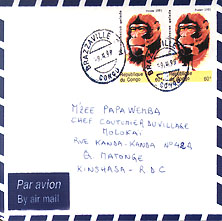 BRAZZAVILLE
CONGO
République du
Congo
60F
République
Congo
60F
MZEE PAPA WEMBA
CHEF COUTUMIER DU VILLAGE
MOLOKAI
RUE KANDA-KANDA Nº 42A
Q. MATONGE
KINSHASA - RDC
Par avion
By air mail